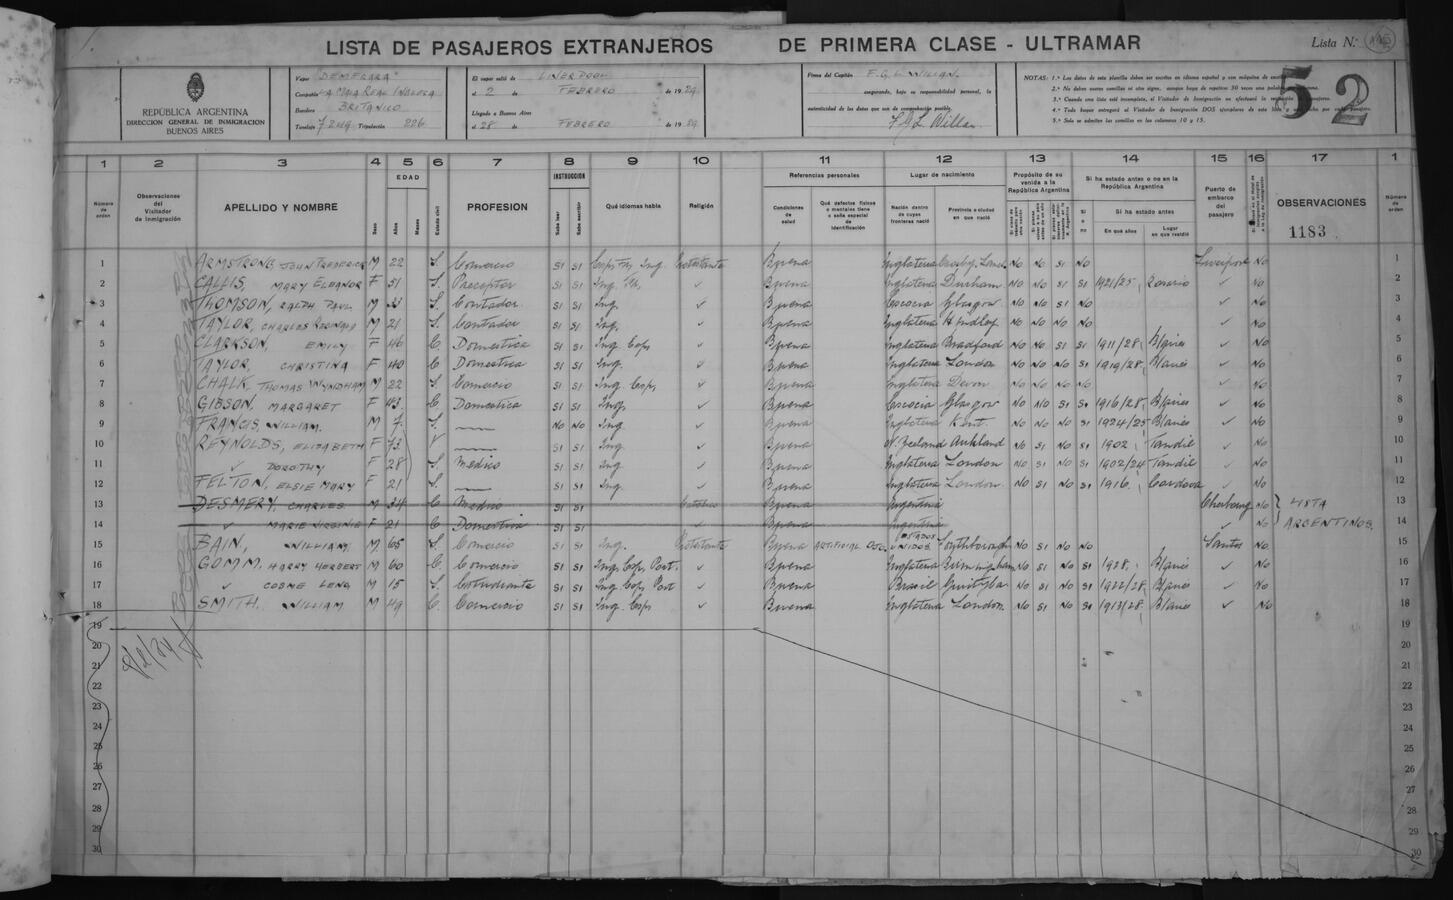 LISTA DE PASAJEROS EXTRANJEROS DE PRIMERA CLASE - ULTRAMAR Lista N.°
REPÚBLICA ARGENTINA
DIRECCION GENERAL DE INMIGRACION
BUENOS AIRES
Vapor "DEMERARA"
Compañía LA MALA REAL INGLESA
Bandera BRITANICO
Tonelaje 7249 Tripulación 226
El vapor salió de LIVERPOOL
el 2 de FEBRERO de 1929
Llegado a Buenos Aires
el 28 de FEBRERO de 1929
Firma del Capitán F. G. L. WILLAN.
asegurando, bajo su responsabilidad personal, la
autenticidad de los datos que son de comprobación posible.
F G L Willan
NOTAS: 1.° Los datos de esta planilla deben ser escritos en idioma español y con máquina de
52
1 2 3 4 5 6 7 8 9 10 11 12 13 14 15 16 17 1
Número de orden
Observaciones del Visitador de Inmigración
APELLIDO Y NOMBRE
Sexo
EDAD
Años
Meses
Estado civil
PROFESION
INSTRUCCION
Sabe leer
Sabe escribir
Qué idiomas habla
Religión
Referencias personales
Condiciones de salud
Qué defectos físicos o mentales tiene o seña especial de identificación
Lugar de nacimiento
Nación dentro de cuyas fronteras nació
Provincia o ciudad en que nació
Propósito de su venida a la República Argentina
Si ha estado antes o no en la República Argentina
Si o no
Si ha estado antes
En qué años
Lugar en que residió
Puerto de embarco del pasajero
OBSERVACIONES
1183
Número de orden
1 ARMSTRONG, JOHN FREDERICK M 22 S. Comercio SI SI Ing. Protestante Buena Inglaterra NO NO SI NO Liverpool NO 1
2 CALLIS, MARY ELEANOR F 51 S. Preceptor SI SI Ing. Buena Inglaterra Durham NO NO SI SI 1921/25 Rosario ✓ NO 2
3 THOMSON, RALPH PAUL M 33 S. Contador SI SI Ing. ✓ Buena Escocia Glasgow NO NO SI NO ✓ NO 3
4 TAYLOR, CHARLES REGINALD M 21 S. Contador SI SI Ing. ✓ Buena Inglaterra NO NO NO NO ✓ NO 4
5 CLARKSON, EMILY F 46 C. Domestica SI SI Ing. Esp ✓ Buena Inglaterra Bradford NO NO SI SI 1911/28 B/aires ✓ NO 5
6 TAYLOR, CHRISTINA F 40 C. Domestica SI SI Ing. ✓ Buena Inglaterra London NO NO SI SI 1919/28 B/aires ✓ NO 6
7 CHALK, THOMAS WYNDHAM M 22 S. Comercio SI SI Ing. Esp. ✓ Buena Inglaterra Devon NO NO NO NO ✓ NO 7
8 GIBSON, MARGARET F 43 C. Domestica SI SI Ing. ✓ Buena Escocia Glasgow NO NO SI SI 1916/28 B/aires ✓ NO 8
9 FRANCIS, WILLIAM. M 7 S. NO NO Ing. ✓ Buena Inglaterra Kent. NO NO NO SI 1924/25 B/aires ✓ NO 9
10 REYNOLDS, ELIZABETH F 73 V SI SI Ing ✓ Buena N. Zeeland Aukland NO SI NO SI 1902 Tandil ✓ NO 10
11 ✓ DOROTHY F 28 S. Medico SI SI Ing ✓ Buena Inglaterra London NO SI NO SI 1902/24 Tandil ✓ NO 11
12 FELTON, ELSIE MARY F 21 S. SI SI Ing. ✓ Buena Inglaterra London. NO SI NO SI 1916 Cordova ✓ NO 12
13 DESMERY, CHARLES M 34 C Medico SI SI Catolico Buena Argentina Cherbourg NO LISTA 13
14 ✓ MARIE VIRGINIE F 21 C Domestica SI SI ✓ Buena Argentina ✓ NO ARGENTINOS. 14
15 BAIN, WILLIAM M. 65 S. Comercio SI SI Ing. Protestante Buena ARTIFICIAL ESTADOS UNIDOS Southborough NO SI NO NO Santos NO 15
16 GOMM, HARRY HERBERT M 60 C. Comercio SI SI Ing. Esp. Port. ✓ Buena Inglaterra Birmingham NO SI NO SI 1928 B/aires ✓ NO 16
17 ✓ COSME LENO M 15 S. Estudiante SI SI Ing Esp Port ✓ Buena Brasil NO SI NO SI 1922/28 B/aires ✓ NO 17
18 SMITH, WILLIAM M 49 C. Comercio SI SI Ing. Esp. ✓ Buena Inglaterra London. NO SI NO SI 1913/28 B/aires ✓ NO 18
19
20 20
21 21
22 22
23 23
24 24
25 25
26 26
27 27
28 28
29 29
30 30